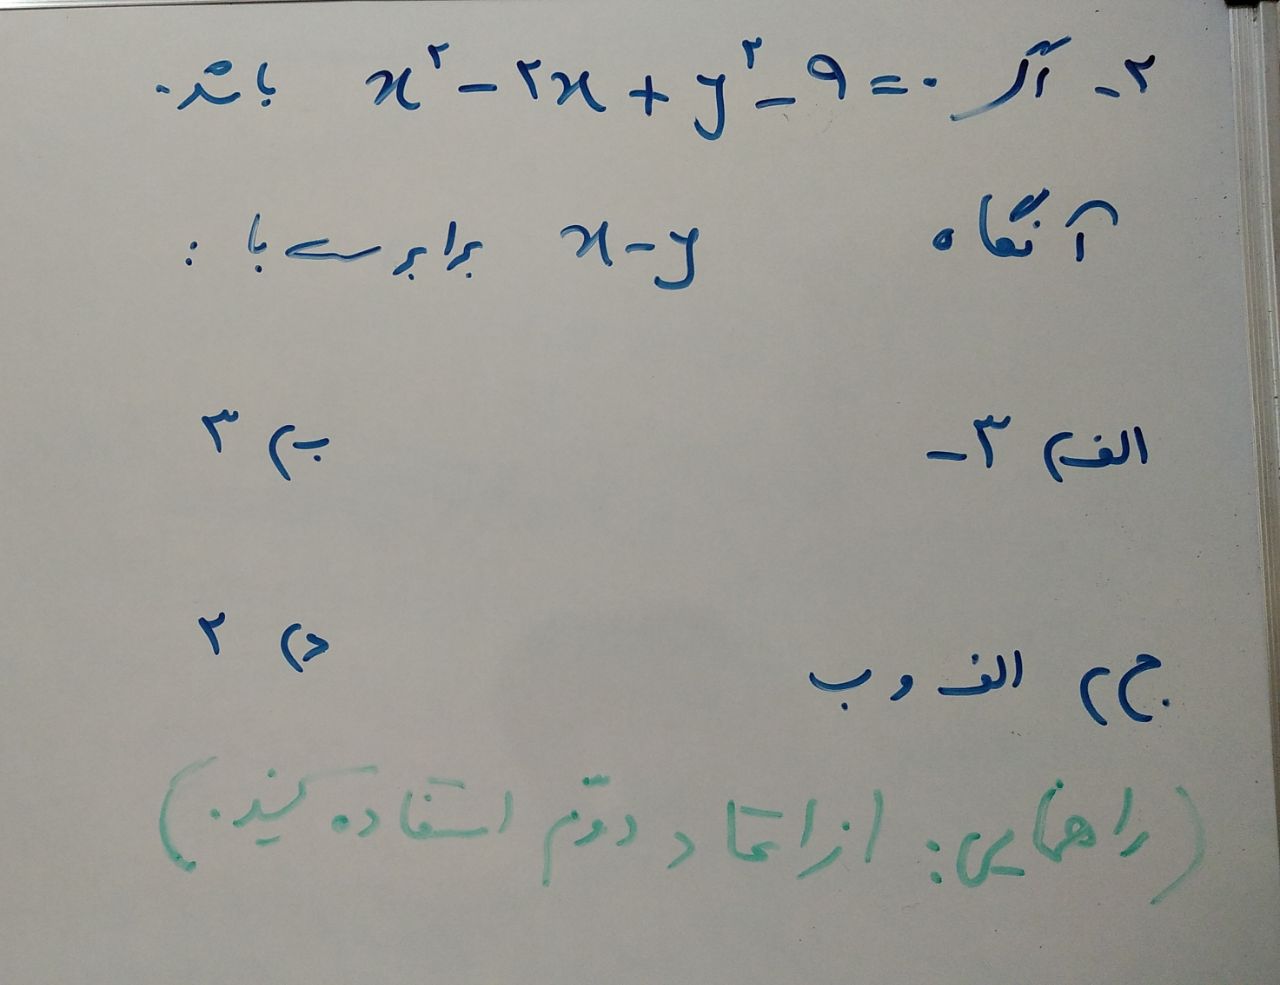 ۲- اگر x² - ۲x + y² - ۹ = ۰ باشد.
آنگاه x-y برابر ست با :
الف) ۳- ب) ۳
ج) الف و ب د) ۲
(راهنمایی: از اتحاد دوّم استفاده کنید.)